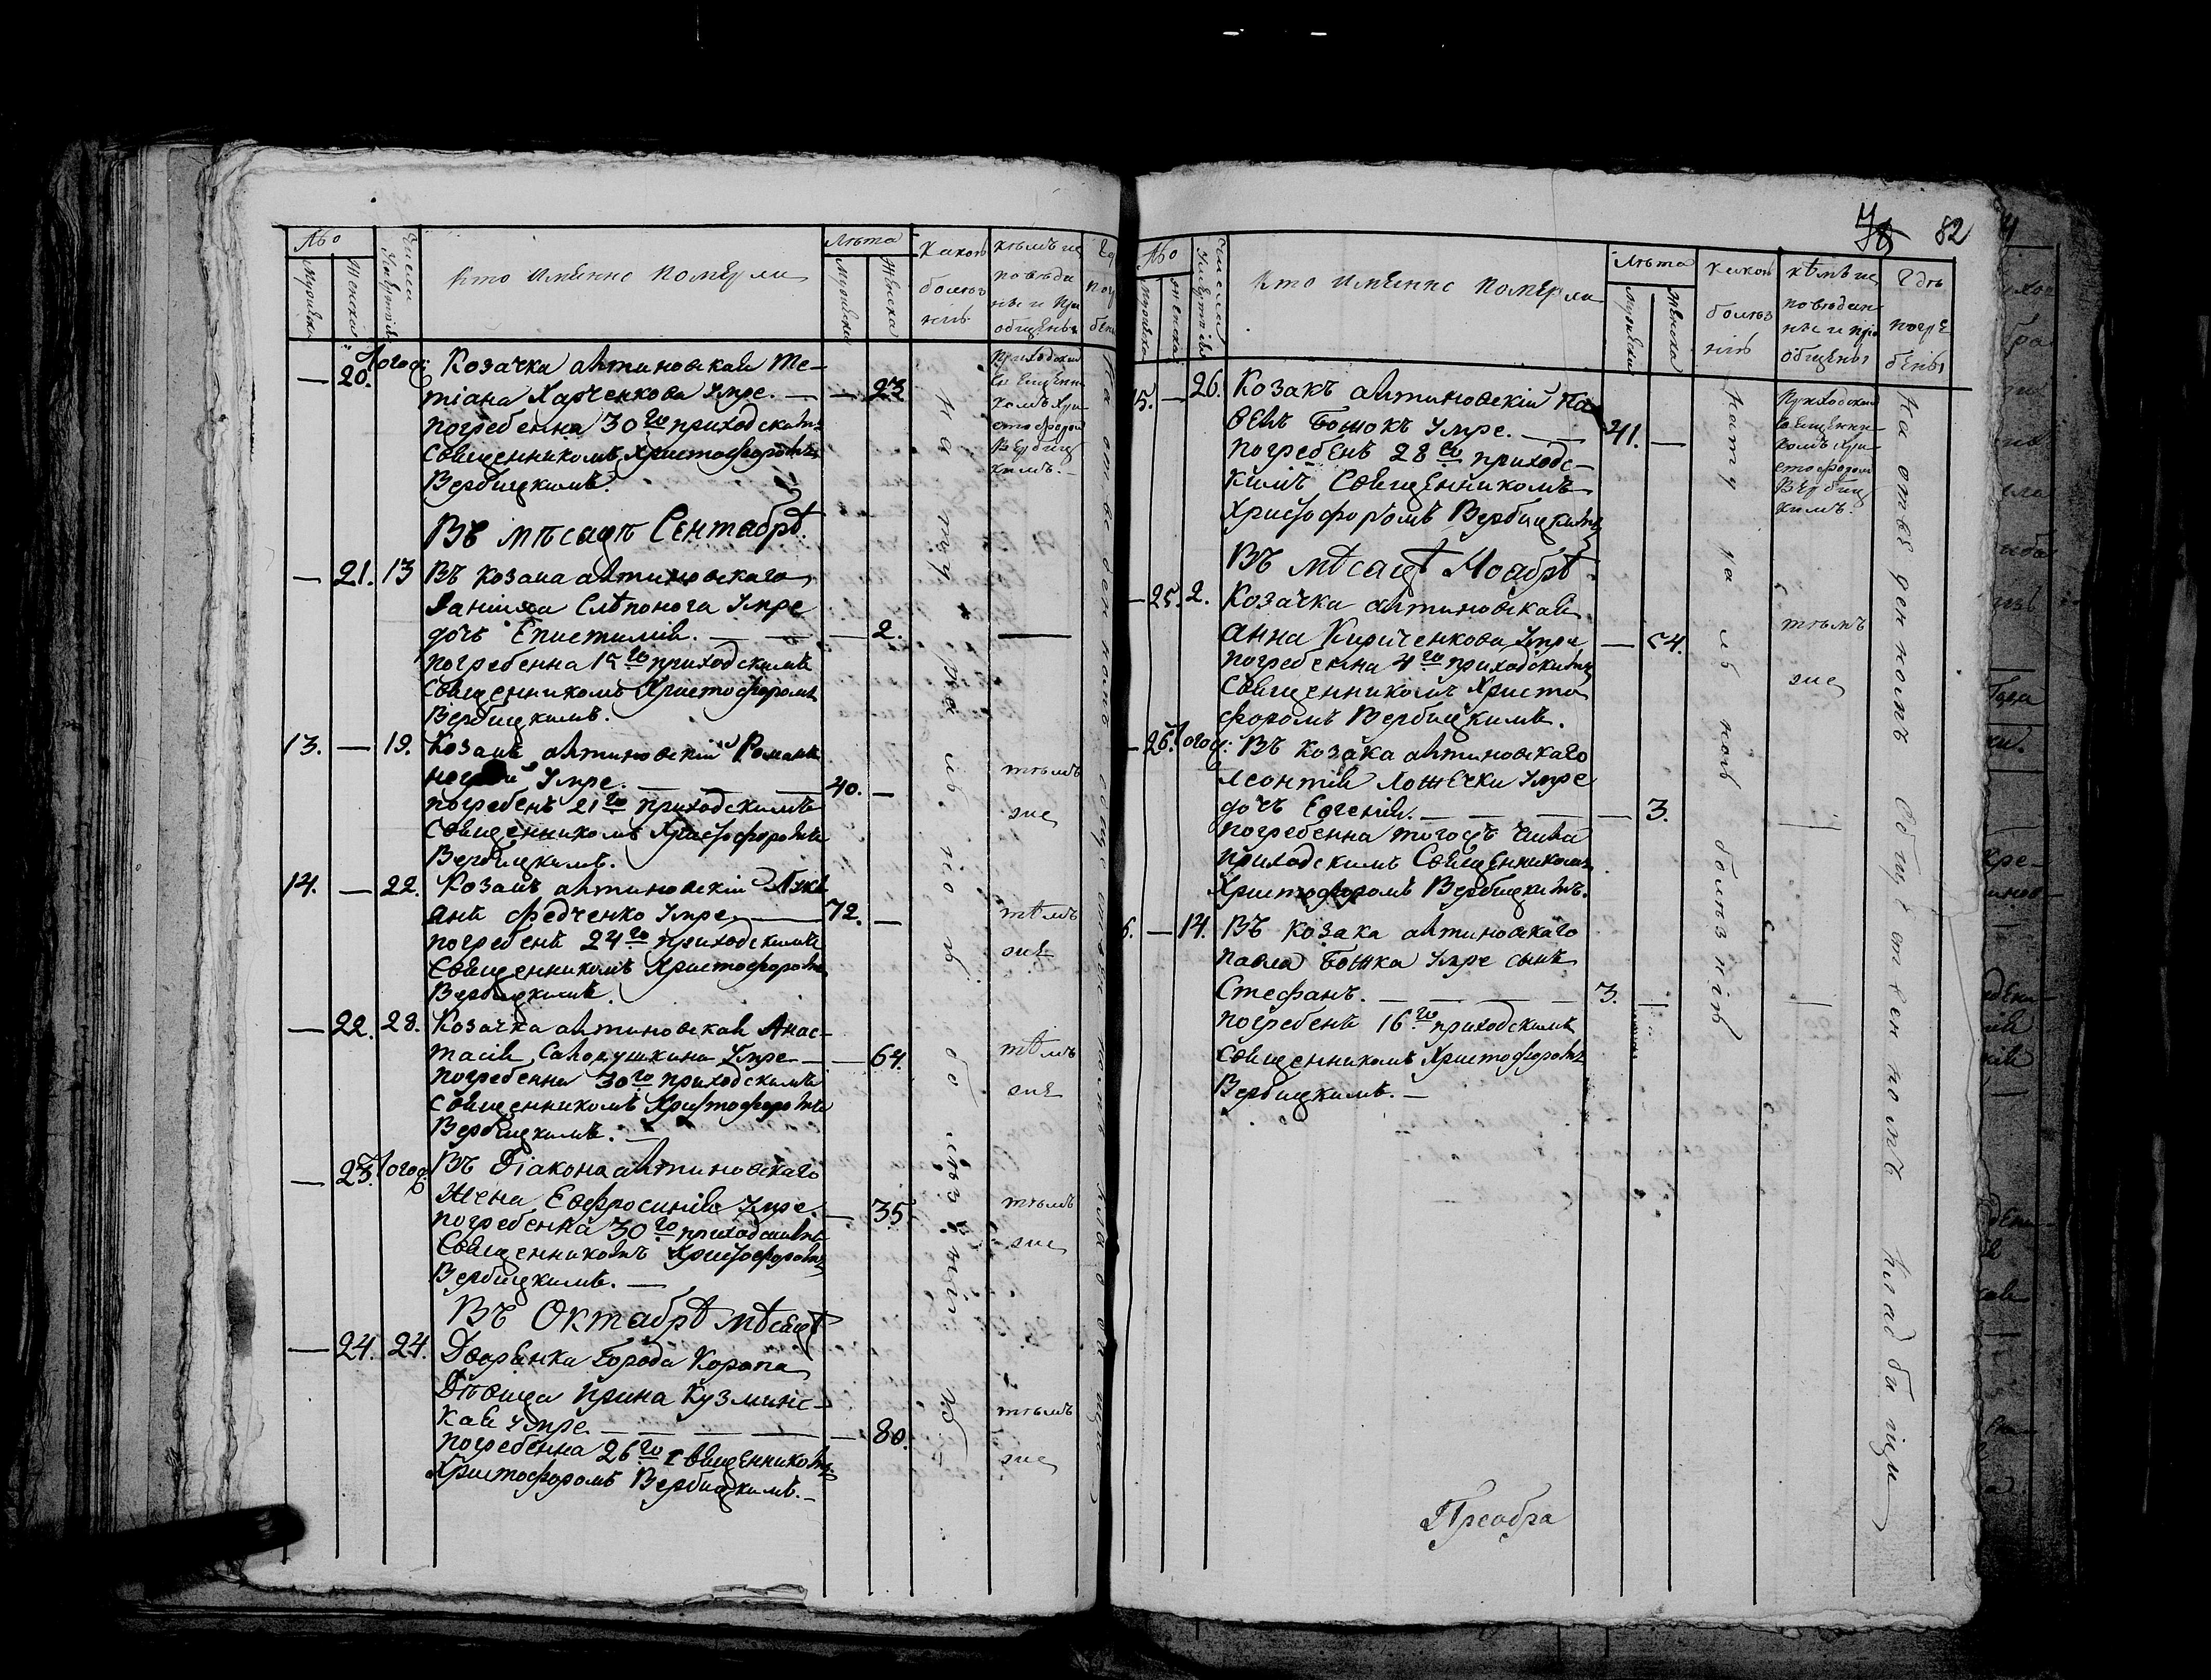 №
Мужеска
Женска
Числа
Кто именно померли
Лѣта
Мужеска
Женска
Какою
болѣз
нію
Кѣмъ ис
повѣда
ны и прі
общены
20. Тогоѳ: Козачка алтиновская Те–
тіана Харченкова Умре. — — 23
погребенна 30го приходскимъ
Священникомъ Христофоромъ
Вербицкимъ.
Приходскимъ
Священни
комъ Хри
стофором
Вербиц
кимъ. –
Въ мѣсацѣ Сентабрѣ.
— 21. 13 Въ козака алтиновскаго
Данiила Слѣпонога Умре
дочь Епистимія. — — — 2.
погребенна 15го приходскимъ
Священникомъ Христофоромъ
Вербицкимъ.
13. — 19. Козакъ алтиновскій Романъ
Умре. — — — 40. —
погребенъ 21го приходскимъ
Священникомъ Христофоромъ
Вербицкимъ.
тѣмъ
же
14. — 22. Козакъ алтиновскій Лукі
анъ Федченко Умре. — 72. —
погребенъ 24го приходскимъ
Священникомъ Христофоромъ
Вербицкимъ.
тѣмъ
же
— 22. 28. Козачка алтиновская Анас–
тасія Умре — — 64.
погребенна 30го приходскимъ
Священникомъ Христофоромъ
Вербицкимъ. —
тѣмъ
же
— 23. Тогоѳ: Въ Діакона алтиновскаго
Жена Евфросинія Умре. — 35.
погребенна 30го приходскимъ
Священникомъ Христофоромъ
Вербицкимъ. —
тѣмъ
же
Въ Октабрѣ мѣсацѣ
— 24. 24. Дворянка Города Коропа
Дѣвица Ирина Кузминс–
кая умре. — — — — 80.
погребенна 26го Священникомъ
Христофоромъ Вербицкимъ. –
тѣмъ
же
Натуральною болѣзнію
82
№
Мужеска
Женска
Числа
Кто именно померли
Лѣта
Мужеска
Женска
Какою
болѣз
нію
Кѣмъ ис
повѣдан
ны и прі
общены
Гдѣ
погре
бены
15. — 26. Козакъ алтиновскій Па
велъ Божокъ Умре. — 41. —
погребенъ 28го приходс–
кимъ Священникомъ
Христофоромъ Вербицкимъ
Приходским
Священни–
комъ Хри–
стофором
Вербиц
кимъ.
Въ мѣсацѣ Ноабрѣ.
— 25. 2. Козачка алтиновская
Анна Кириченкова Умре — 54.
погребенна 4го приходскимъ
Священникомъ Христо
форомъ Вербицкимъ.
тѣмъ
же
— 26. Тогоѳ: Въ Козака алтиновскаго
Леонтія Ложечки Умре
дочъ Евгенія. — — — — 3.
погребенна тогожъ числа
приходскимъ Священникомъ
Христофоромъ Вербицкимъ.
— 14. Въ козака алтиновскаго
Павла Божка Умре сынъ
Стефанъ. — — — — 3. —
погребенъ 16го приходскимъ
Священникомъ Христофоромъ
Вербицкимъ. –
Натуральною болѣзнію
На кладбищи
Преобра